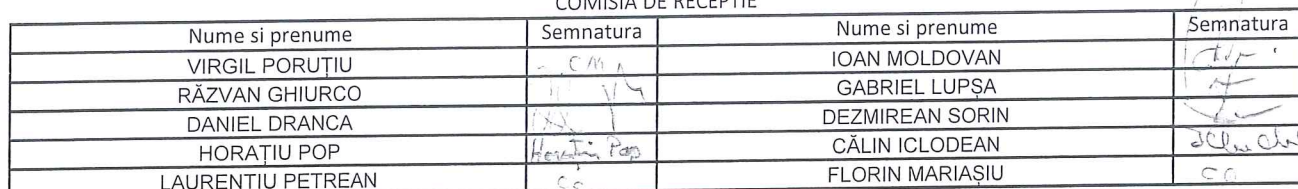 COMISIA DE RECEPTIE
Nume si prenume Semnatura Nume si prenume Semnatura
VIRGIL PORUȚIU IOAN MOLDOVAN
RĂZVAN GHIURCO GABRIEL LUPȘA
DANIEL DRANCA DEZMIREAN SORIN
HORAȚIU POP Horatiu Pop CĂLIN ICLODEAN
LAURENȚIU PETREAN FLORIN MARIAȘIU